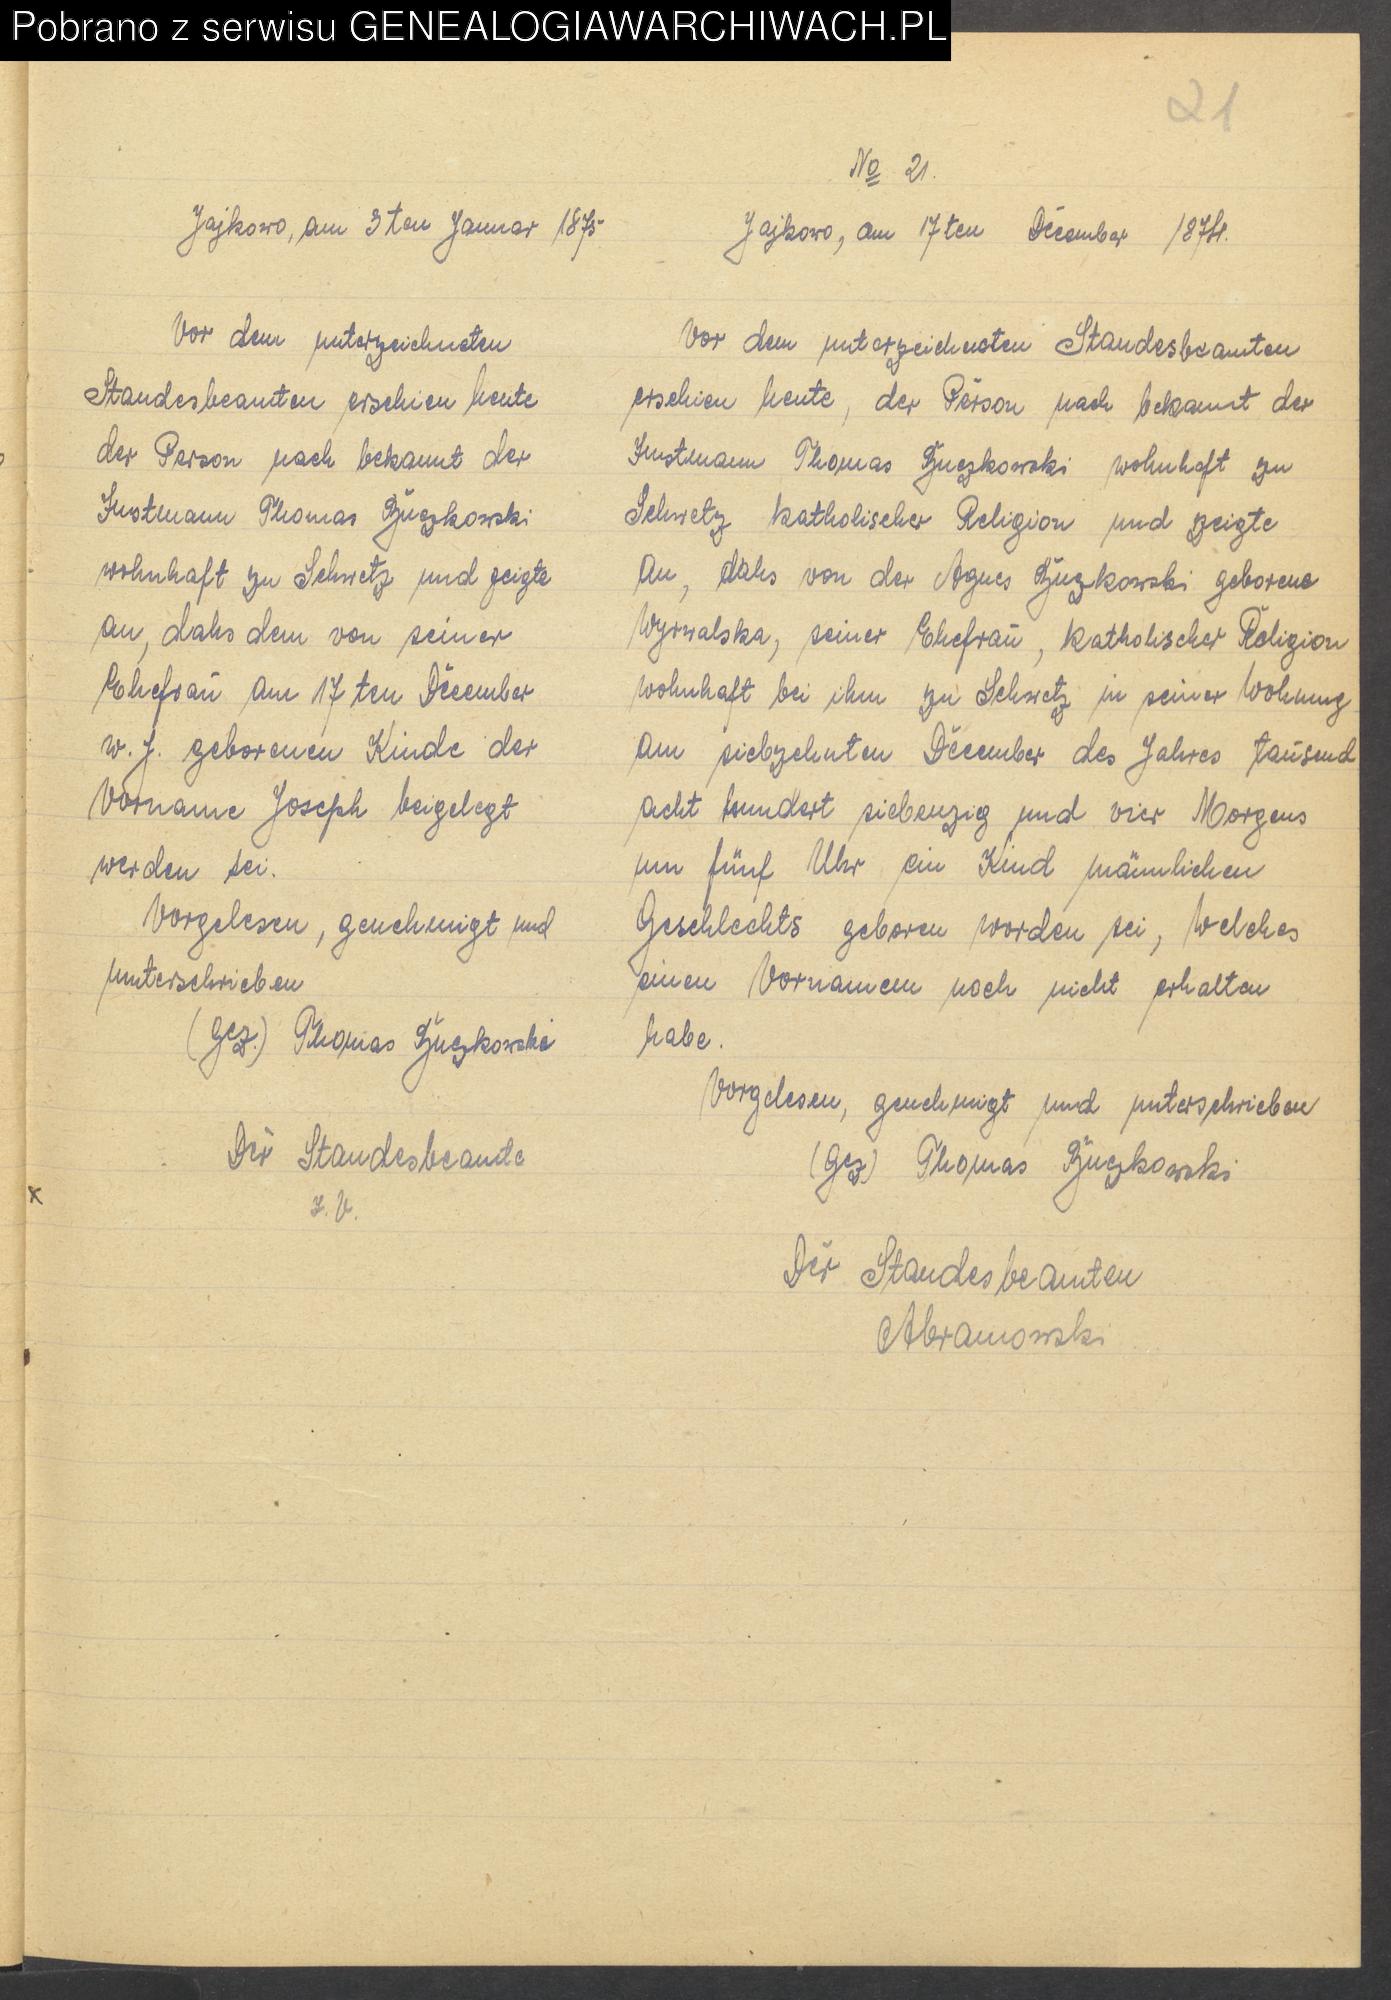 Pobrano z serwisu GENEALOGIAWARCHIWACH.PL
21
Jajkowo, am 3ten Januar 1875
Vor dem unterzeichneten
Standesbeamten erschien heute
der Person nach bekannt der
Instmann Thomas
wohnhaft zu Schwetz und zeigte
an, dahs dem von seiner
Ehefraŭ am 17ten December
v. J. geborenen Kinde der
Vorname Joseph beigelegt
werden sei.
Vorgelesen, genehmigt und
unterschrieben
(gez.) Thomas
Der Standesbeamte
I. V.
No 21.
Jajkowo, am 17ten December 1874.
Vor dem unterzeichneten Standesbeamten
erschien heute, der Person nach bekannt der
Instmann Thomas wohnhaft zu
Schwetz katholischer Religion und zeigte
an, dahs von der Agnes geborene
Wyrwalska, seiner Ehefraŭ, katholischer Religion
wohnhaft bei ihm zu Schwetz in seiner Wohnung
am siebzehnten December des Jahres taŭsend
acht hundert siebenzig und vier Morgens
um fünf Uhr ein Kind männlichen
Geschlechts geboren worden sei, welches
einen Vornamen noch nicht erhalten
habe.
Vorgelesen, genehmigt und unterschrieben
(gez) Thomas
Der Standesbeamten
Abramowski